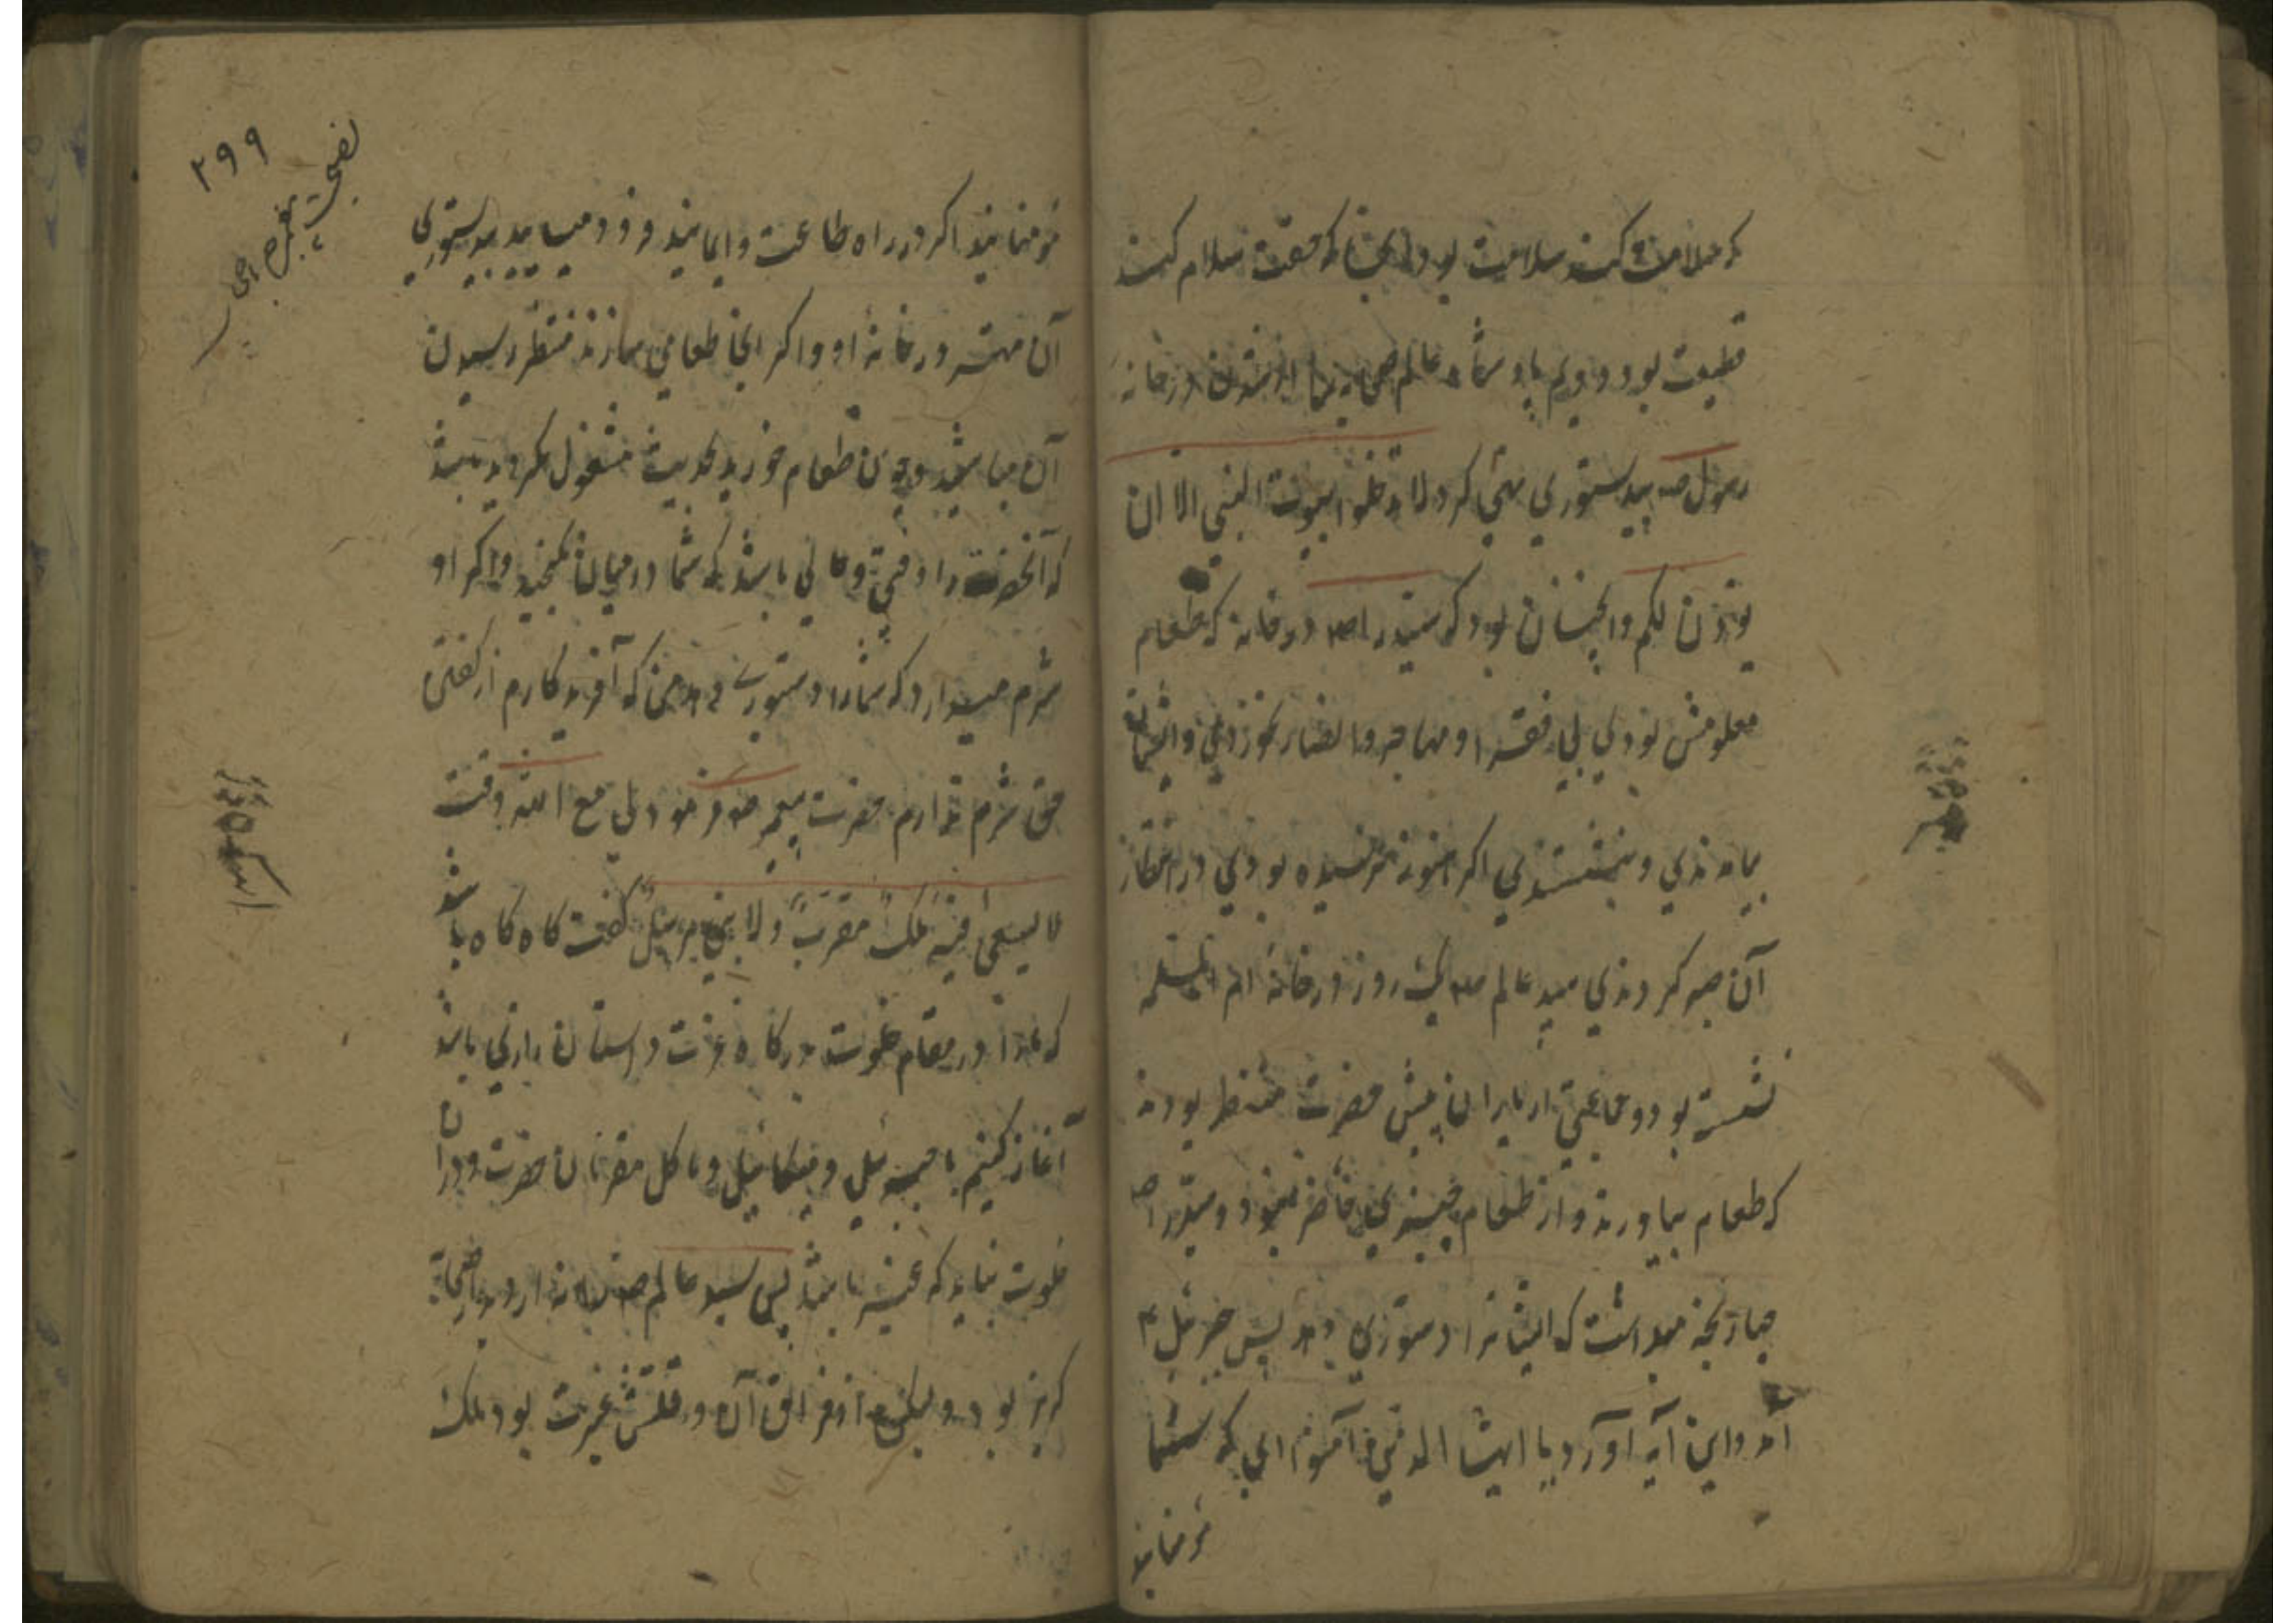 که ملامت کنند سلامت بود و آنجا که حقت سلام کنند
قطیعت بود و دویم پادشاه عالم صحابه را از شدن در خانهٔ
رسول صہ بیدستوری نهی کرد لا تدخلوا بیوت النبی الا ان
یوذن لکم و آنچنان بود که سید را صہ در خانه که طعام
معلومش بودی بی فقرا و مهاجر و انصار نخوردی و ایشان
بیامدندی و بنشستندی اگر هنوز نرسیده بودی در انتظار
آن صبر کردندی سید عالم صہ یک روز در خانهٔ ام سلمه
نشسته بود و جماعتی از یاران پیش حضرت منتظر بودند
که طعام بیاورند و از طعام چیزی حاضر نبود و سید را صہ
حیا رنجه میداشت که ایشانرا دستوری دهد پس جبرئیل ۴
آمد و این آیه آورد یا ایها الذین آمنوا ای که شما
مؤمنانید
مؤمنانید اگر در راه طاعت و ایمانید و زود مییایید بیدستوری
آن مهتر در خانهٔ او و اگر آنجا طعامی سازند منتظر رسیدن
آن مباشید و چون طعام خورید بحدیث مشغول مگردید
که آنحضرت را وقتی و حالی باشد که شما در میان نگنجید و اگر او
شرم میدارد که شما را دستوری دهد من که آفریدگارم از گفتن
حق شرم ندارم حضرت پیغمبر صہ فرمود لی مع الله وقت
لا یسعنی فیه ملک مقرب ولا نبی مرسل گفت گاه گاه باشد
که ما را در مقام خلوت درگاه عزت داستان رازی باشد
آغاز کنیم با جبرئیل و میکائیل و با کل مقربان حضرت و در آن
خلوت نباید که غیر باشد پس سید عالم صہ را نه از دیدار صحابه
گریز بود ولیکن از فراق آن وقتش غیرت بود ملک
۲۹۹
نصیحت